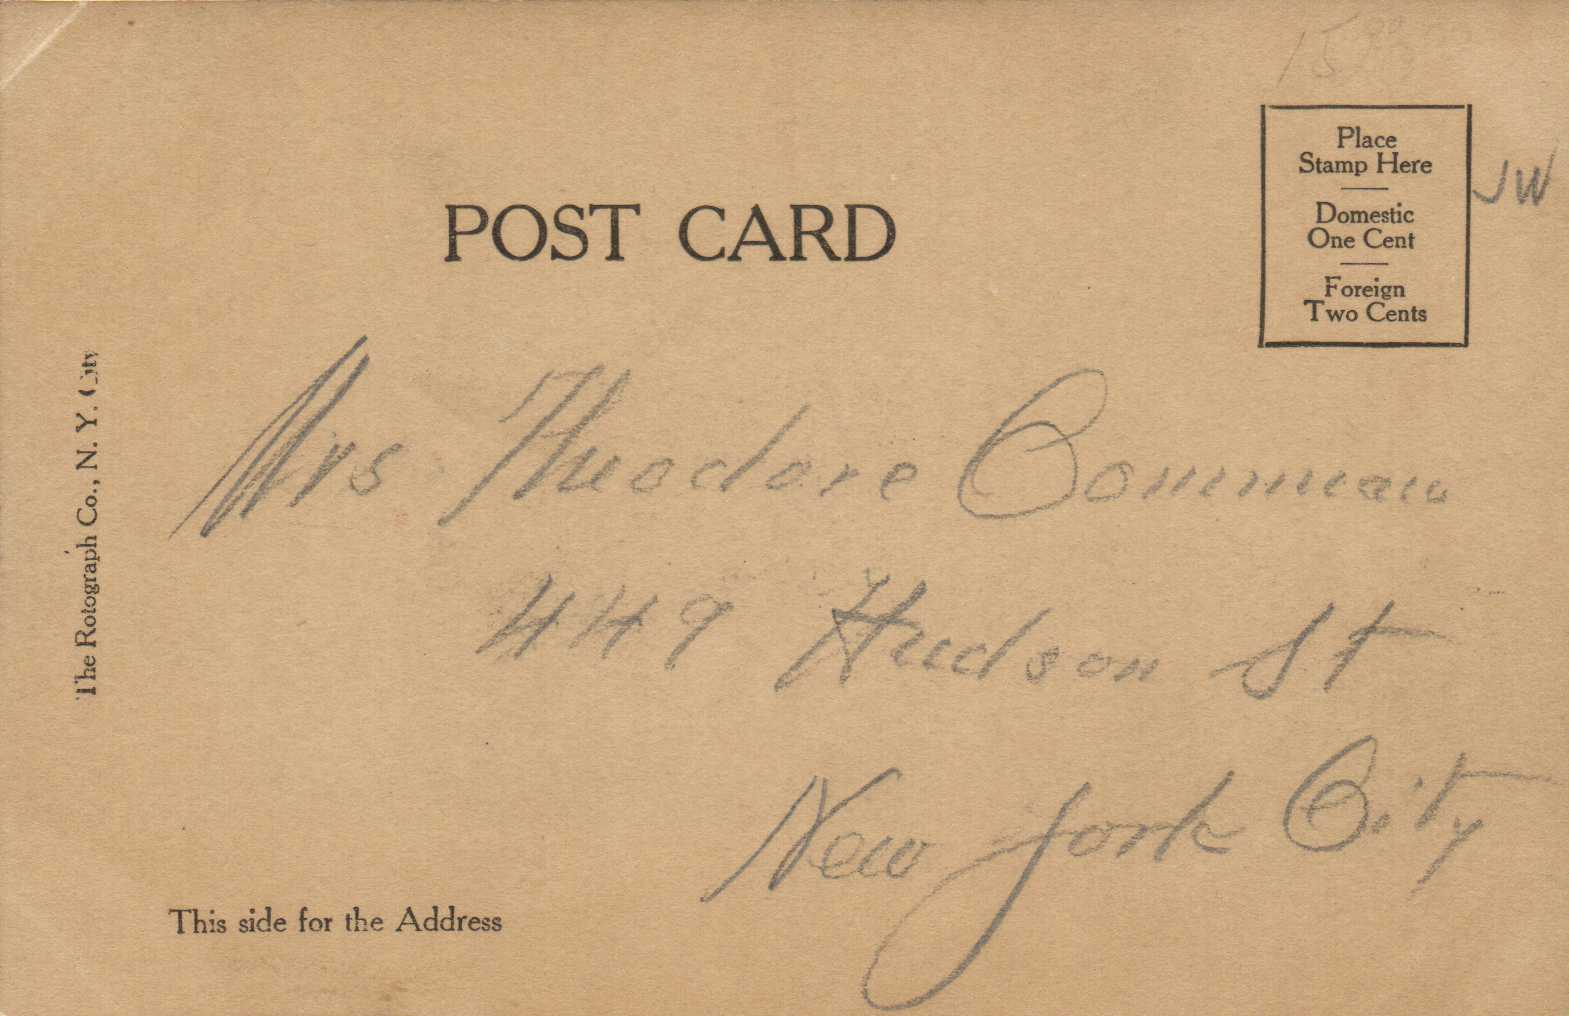 15
Place
Stamp Here
Domestic
One Cent
Foreign
Two Cents
JW
POST CARD
The Rotograph Co., N. Y. City
Mrs Theodore
449 Hudson St
New York City
This side for the Address